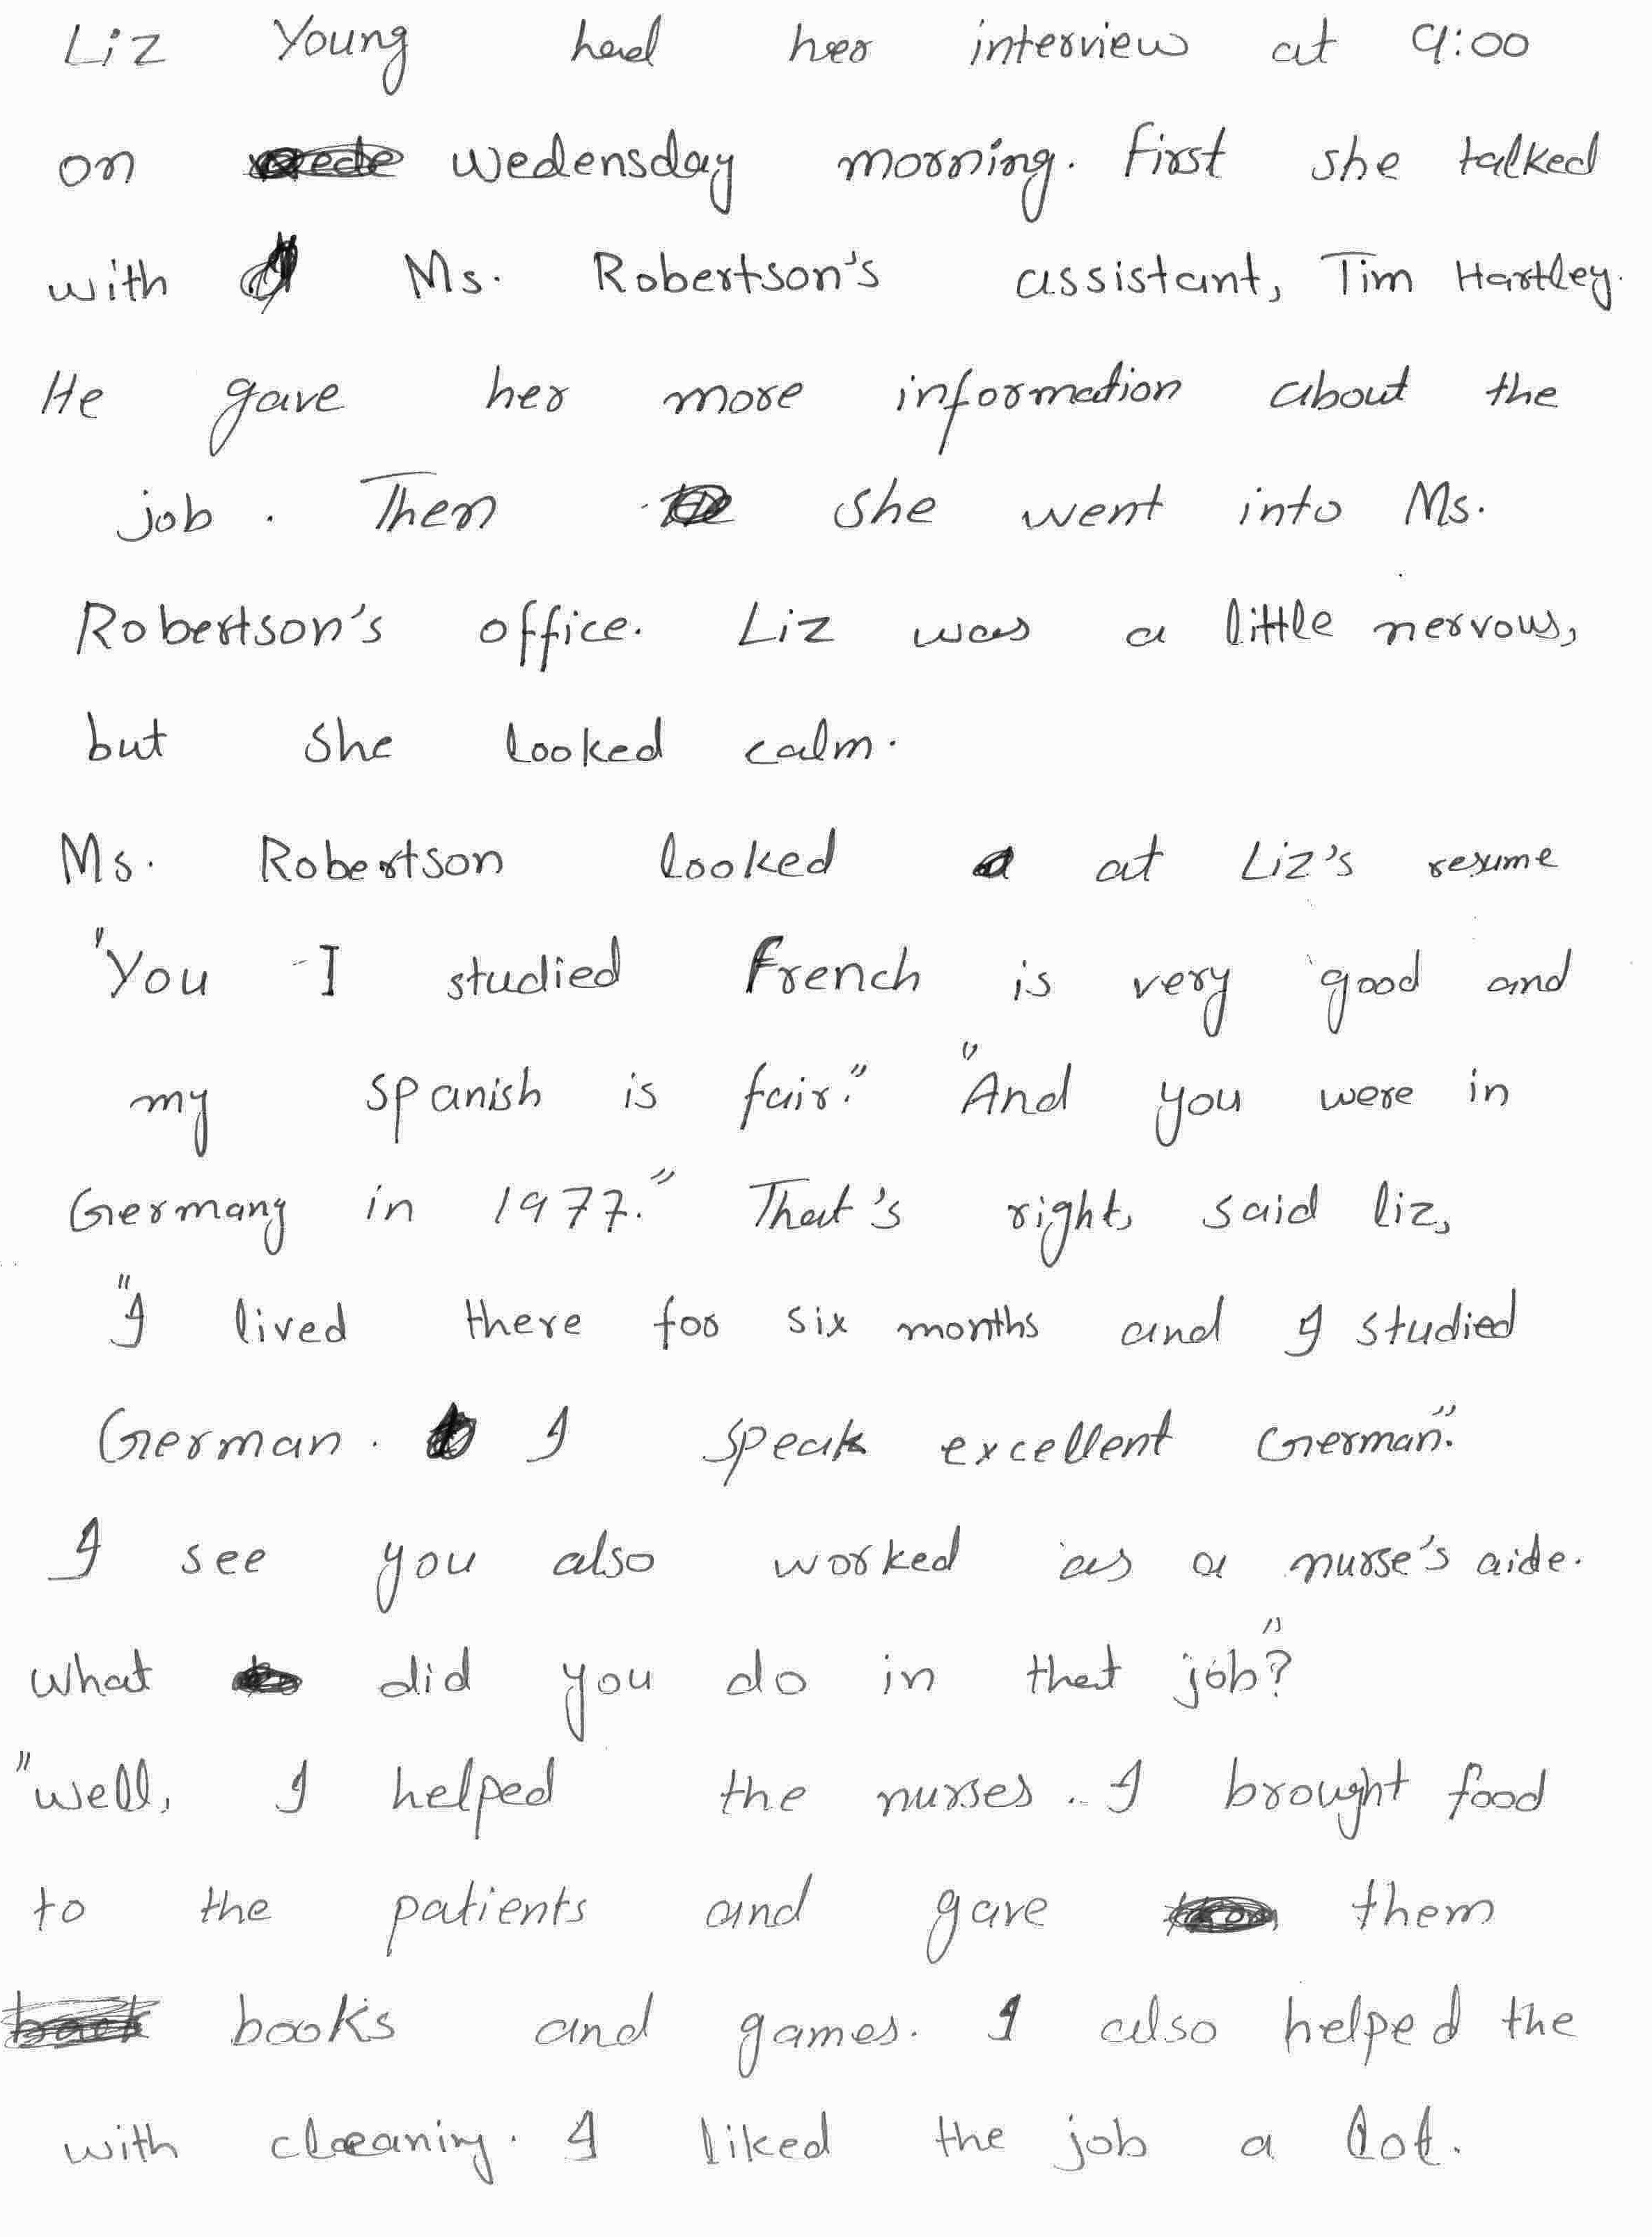 Liz Young had her interview at 9:00
on wedensday morning. First she talked
with Ms. Robertson's assistant, Tim Hartley.
He gave her more information about the
job. Then she went into Ms.
Robertson's office. Liz was a little nervous,
but she looked calm.
Ms. Robertson looked at Liz's resume
"You I studied French is very good and
my spanish is fair." "And you were in
Germany in 1977." That's right, said liz,
"I lived there for six months and I studied
German. I speak excellent German."
I see you also worked as a nurse's aide.
what did you do in that job?"
"well, I helped the nurses. I brought food
to the patients and gave them
books and games. I also helped the
with cleaning. I liked the job a lot.